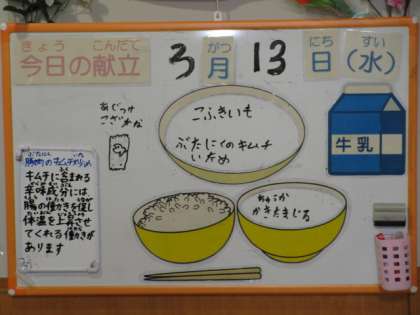 きょう こんだて
今日の献立
3月13日(水)
がつ
にち
すい
あじつけ
こざかな
こふきいも
ぶたにくのキムチ
いため
牛乳
ちゅうか
かきたまじる
キムチに含まれる
辛味成分には
腸の働きを促し
体温を上昇させ
てくれる働きが
あります